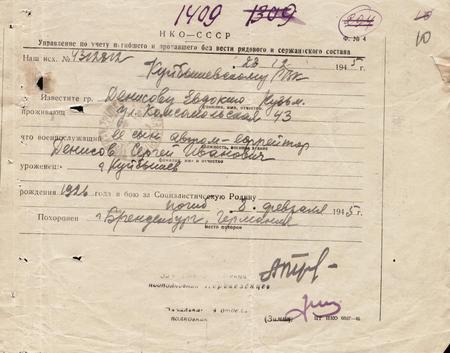 1409 1309 894
НКО—СССР
Ф. № 4
10
Управление по учету погибшего и пропавшего без вести рядового и сержантского состава
Наш исх. № 4312212
23 12 1945
Куйбышевскому РВК
Известите гр. Денисову Евдокию Кузьм.
фамилия, имя, отчество
проживающ ул Комсомольская 43
что военнослужащий ее сын автом-ефрейтор
должность, военное звание
Денисов Сергей Иванович
фамилия, имя и отчество
уроженец: г Куйбышев
рождения 1926 года в бою за Социалистическую Родину
погиб 8. февраля 1945 г
Похоронен г Бренденбург, Германия
место похорон
подполковник
полковник